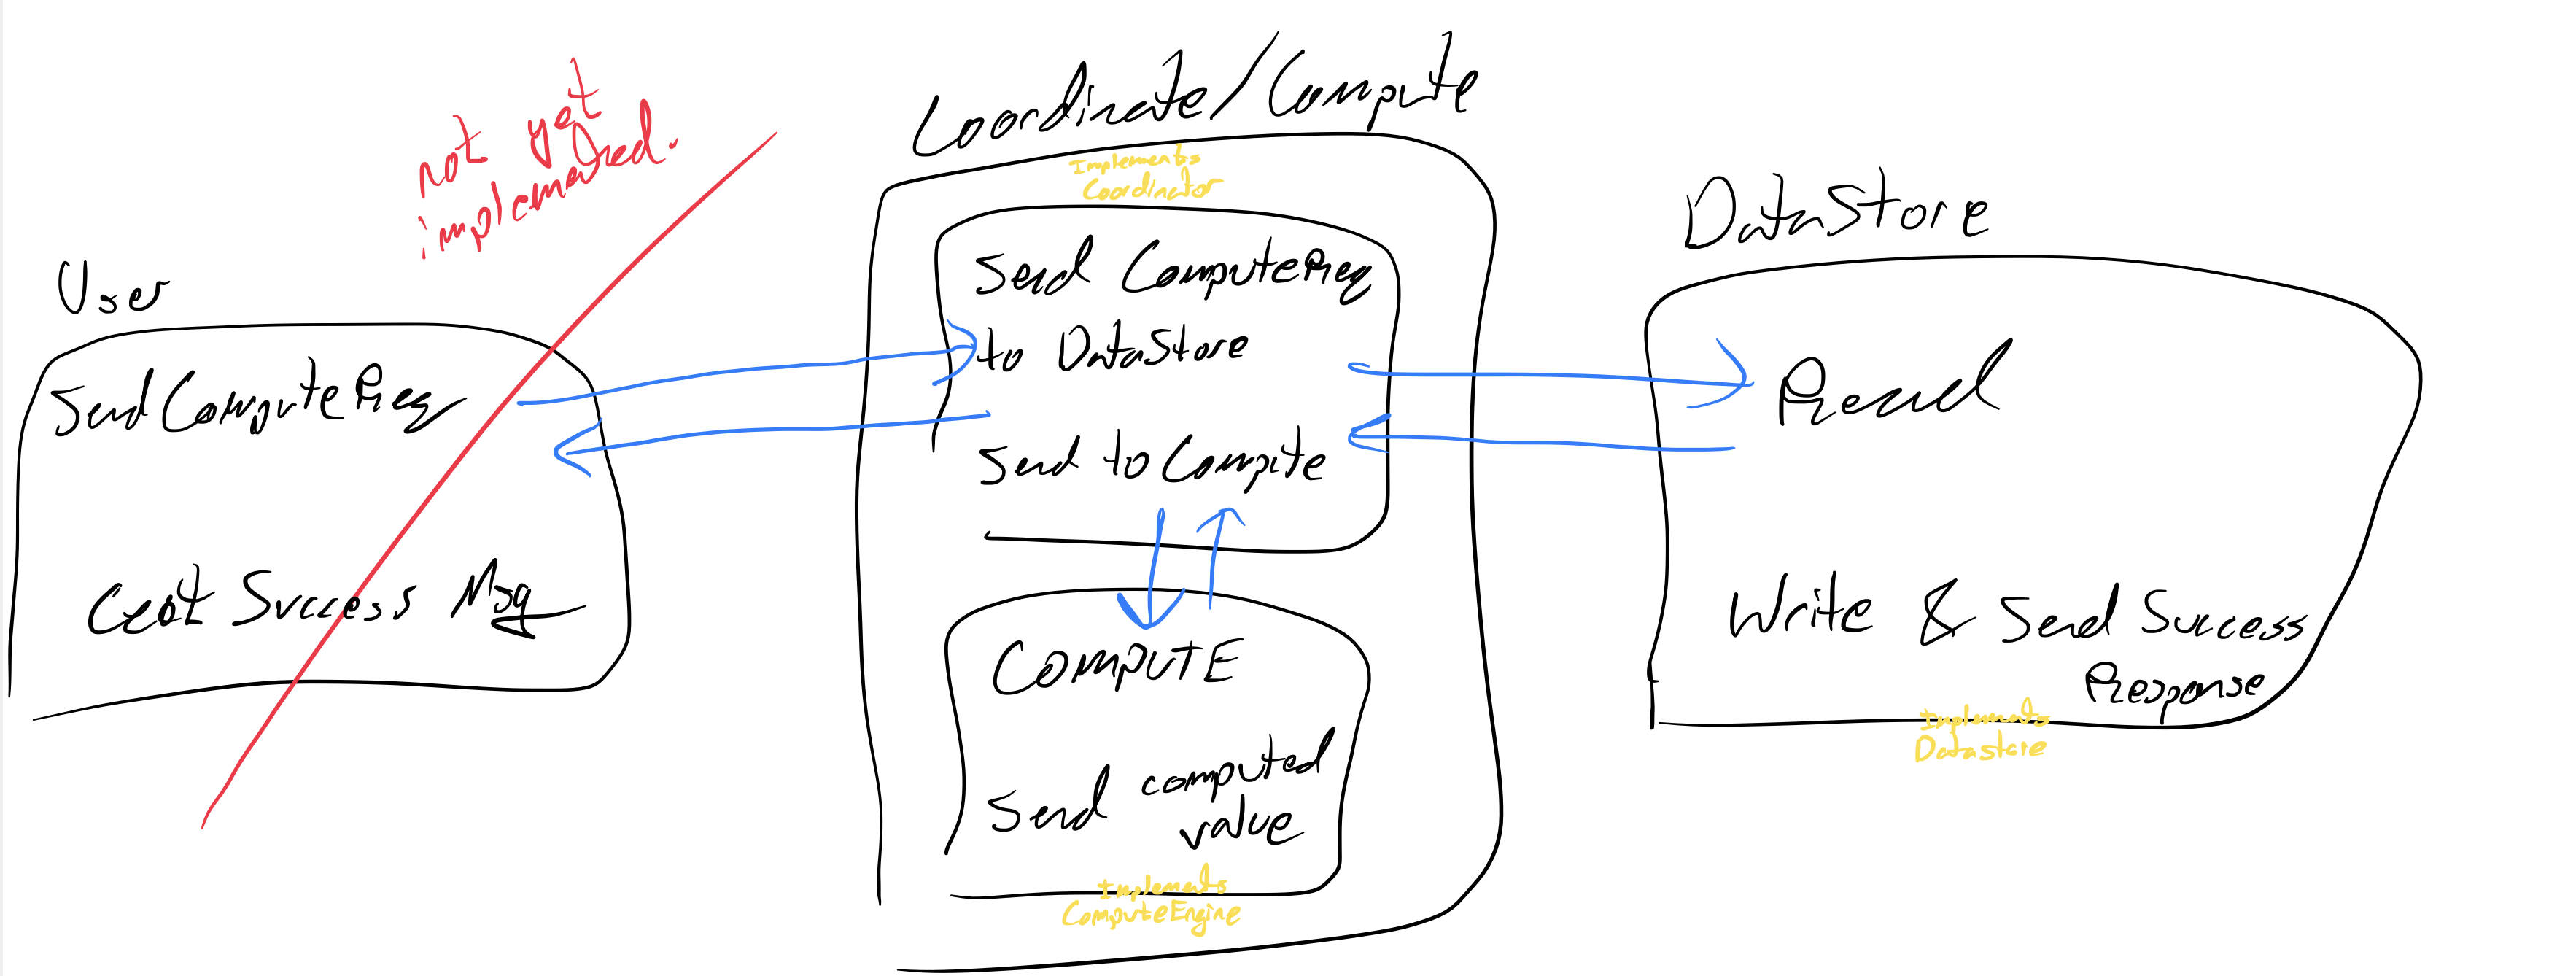 not yet
implemented.
User
SendComputeReq
Get Success Msg
Coordinate/Compute
Implements
Coordinator
Send ComputeReq
to DataStore
Send to Compute
COMPUTE
Send computed
value
Implements
ComputeEngine
DataStore
Read
Write & Send Success
Response
Implements
Datastore